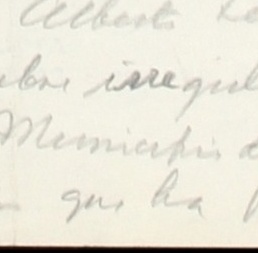 Alberto
irregul
Municipio d
que ha